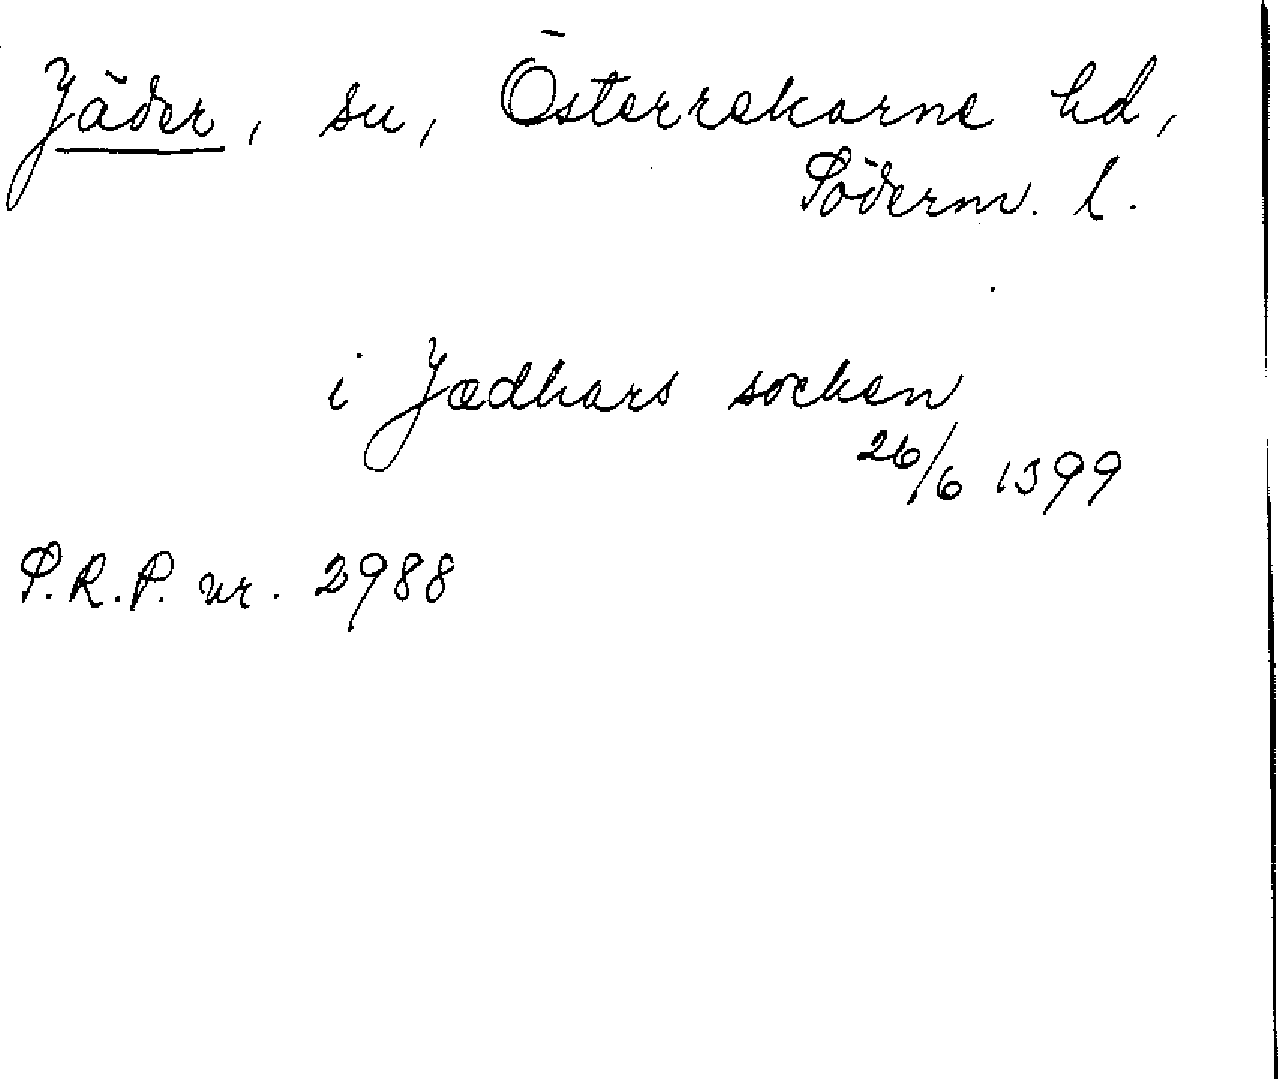 Jäder, sn, Österrekarne hd,
Söderm. l.
i Jædhars socken
26/6 1399
S.R.P. nr. 2988